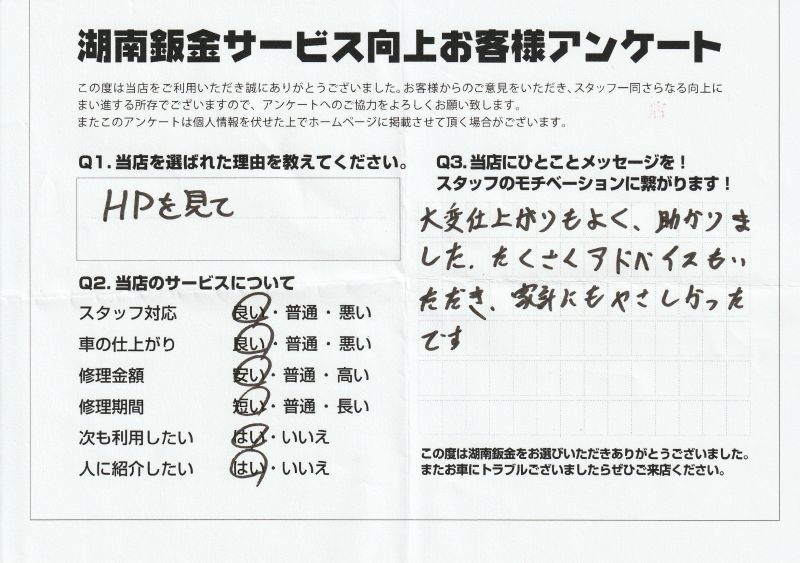 湖南鈑金サービス向上お客様アンケート
この度は当店をご利用いただき誠にありがとうございました。お客様からのご意見をいただき、スタッフ一同さらなる向上に
まい進する所存でございますので、アンケートへのご協力をよろしくお願い致します。
またこのアンケートは個人情報を伏せた上でホームページに掲載させて頂く場合がございます。
Q1.当店を選ばれた理由を教えてください。
HPを見て
Q2.当店のサービスについて
スタッフ対応 良い・普通・悪い
車の仕上がり 良い・普通・悪い
修理金額 安い・普通・高い
修理期間 短い・普通・長い
次も利用したい はい・いいえ
人に紹介したい はい・いいえ
Q3.当店にひとことメッセージを！
スタッフのモチベーションに繋がります！
大変仕上がりもよく、助かりま
した。たくさくアドベイスもい
ただき、家計にもやさしかった
です
この度は湖南鈑金をお選びいただきありがとうございました。
またお車にトラブルございましたらぜひご来店ください。